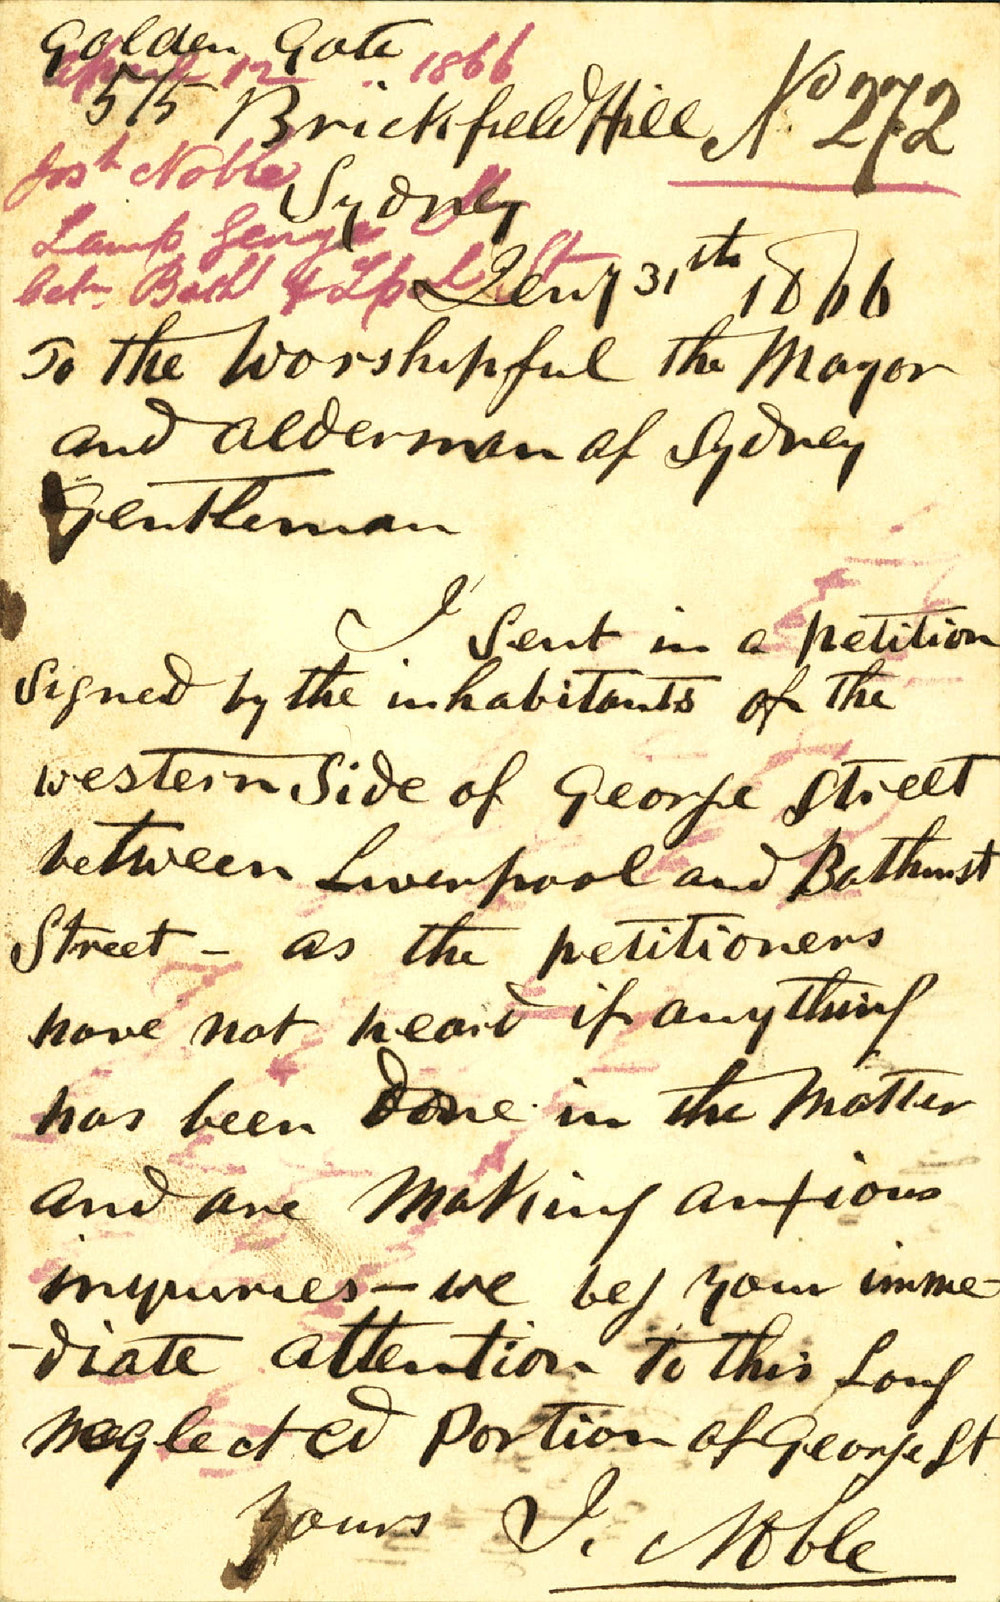 Golden Gate
12 1866
575 Brickfield Hill No 272
Josh Noble
Sydney
Lamp George St
31th 1866
betn Bath & Lpl St
To the Worshipful the Mayor
and alderman of Sydney
Gentleman
I Sent in a petition
Signed by the inhabitants of the
western Side of George Street
between Liverpool and Bathurst
Street - as the petitioners
have not heard if anything
has been done in the Matter
and are Making anxious
inquries - we beg your imme-
-diate attention to this Long
neglected Portion of George St
Yours J. Noble